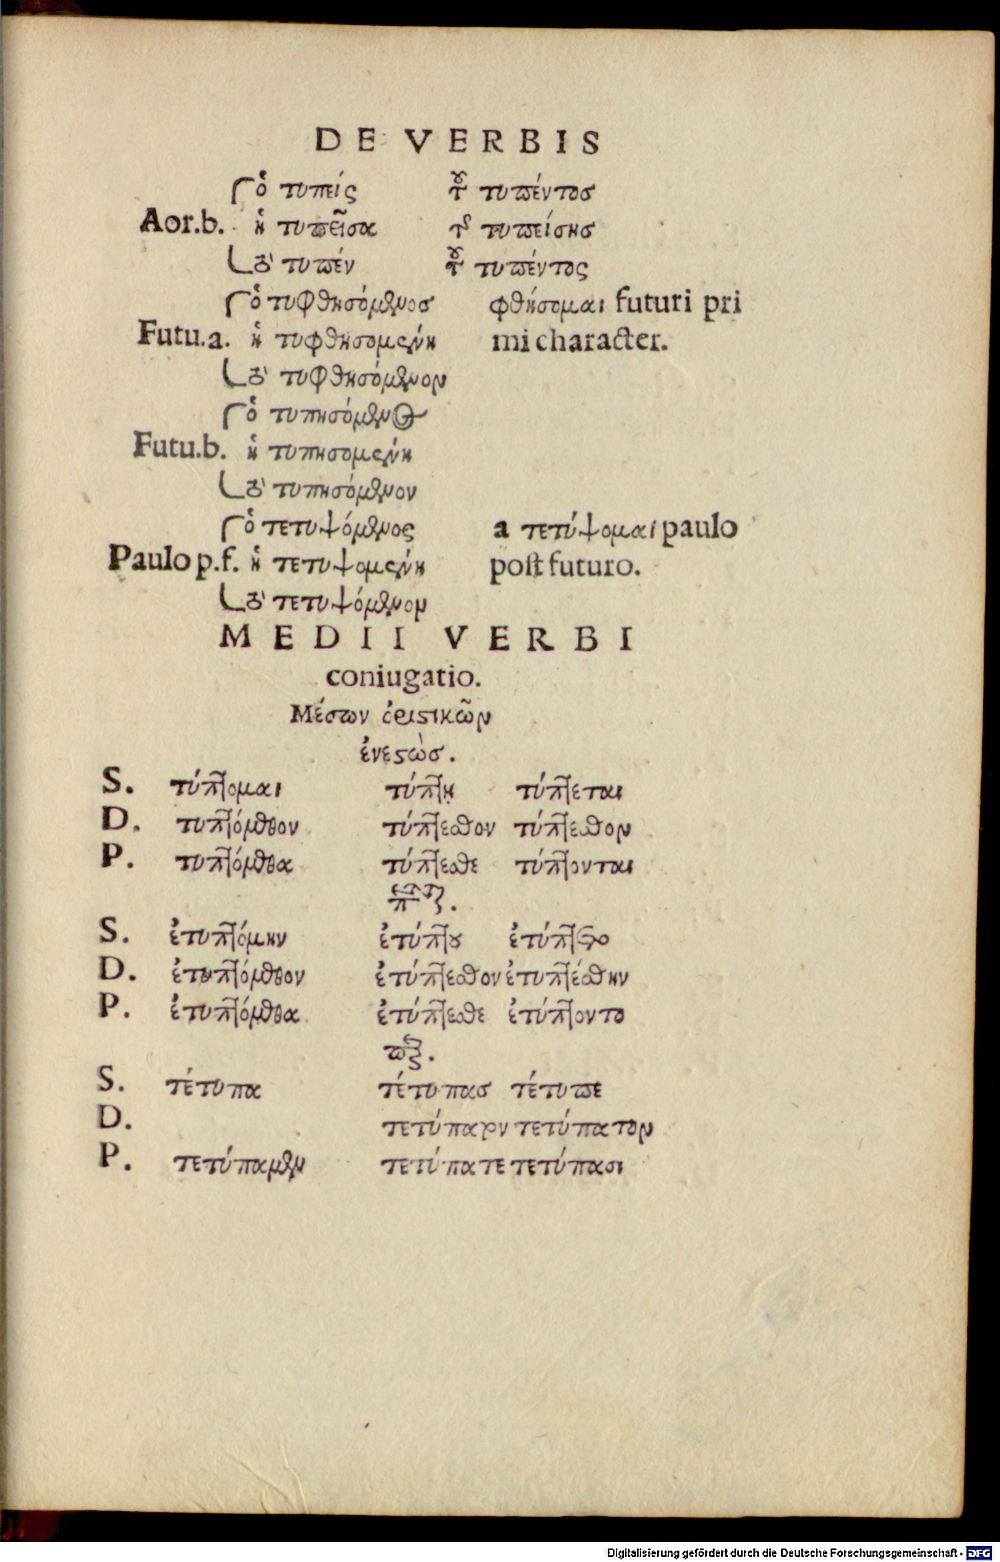 DE VERBIS
ὁ τυπείς τοῦ τυπέντοσ
Aor.b. ἡ τυπεῖσα τῆσ τυπείσησ
τὸ τυπέν τοῦ τυπέντος
ὁ τυφθησόμενοσ φθήσομαι futuri pri
Futu.a. ἡ τυφθησομένη mi character.
τὸ τυφθησόμενον
ὁ τυπησόμενος
Futu.b. ἡ τυπησομένη
τὸ τυπησόμενον
ὁ τετυψόμενος a τετύψομαι paulo
Paulo p.f. ἡ τετυψομένη post futuro.
τὸ τετυψόμενον
MEDII VERBI
coniugatio.
Μέσων ὁριστικῶν
ἐνεστώσ.
S. τύπτομαι τύπτῃ τύπτεται
D. τυπτόμεθον τύπτεσθον τύπτεσθον
P. τυπτόμεθα τύπτεσθε τύπτονται
S. ἐτυπτόμην ἐτύπτου ἐτύπτετο
D. ἐτυπτόμεθον ἐτύπτεσθον ἐτυπτέσθην
P. ἐτυπτόμεθα ἐτύπτεσθε ἐτύπτοντο
S. τέτυπα τέτυπασ τέτυπε
D. τετύπατον τετύπατον
P. τετύπαμεν τετύπατε τετύπασι
Digitalisierung gefördert durch die Deutsche Forschungsgemeinschaft - DFG